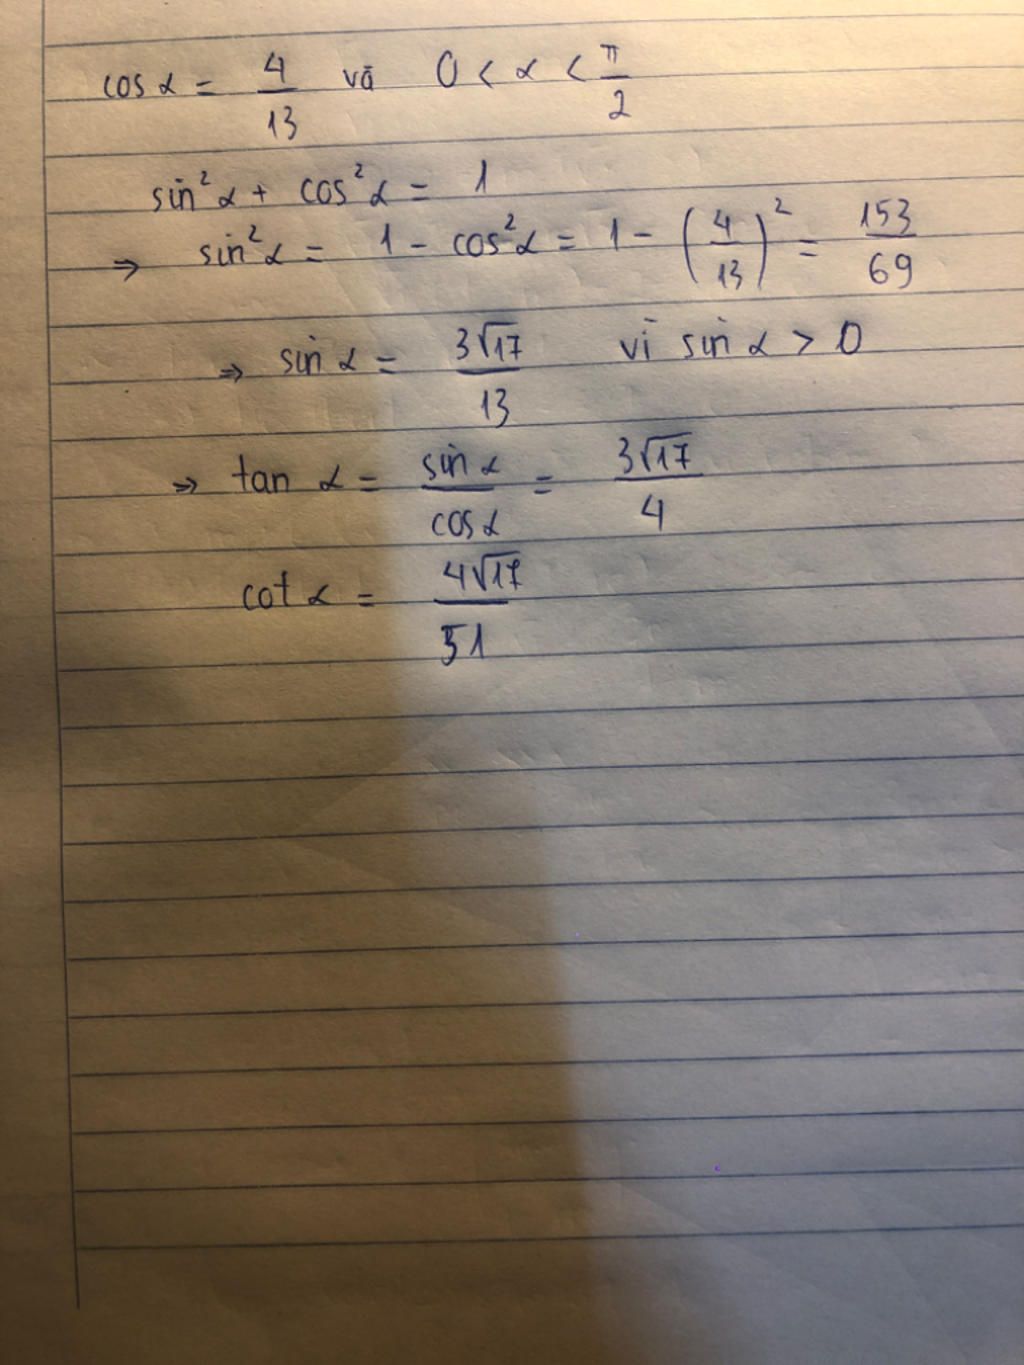 cos α = 4/13 và 0 < α < π/2
sin²α + cos²α = 1
⇒ sin²α = 1 - cos²α = 1 - (4/13)² = 153/69
⇒ sin α = 3√17/13 vì sin α > 0
⇒ tan α = sin α/cos α = 3√17/4
cot α = 4√17/51